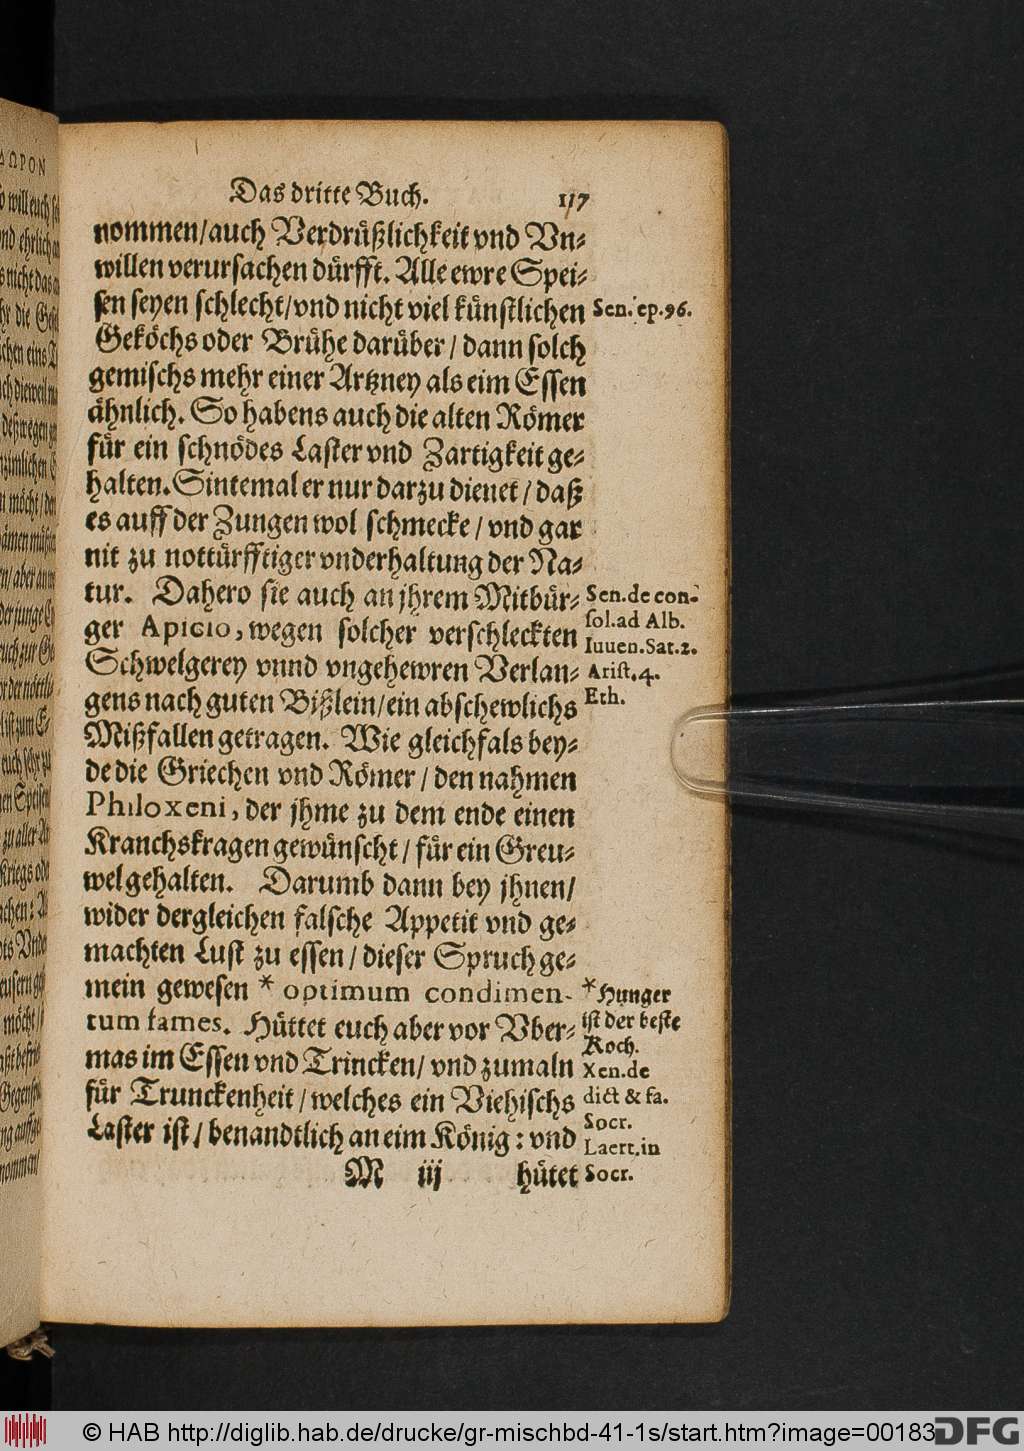 Das dritte Buch. 117
nommen/auch Verdrüßlichkeit vnd Vn-
willen verursachen dürfft. Alle ewre Spei-
sen seyen schlecht/vnd nicht viel künstlichen
Geköchs oder Brühe darüber/dann solch
gemischs mehr einer Artzney als eim Essen
ähnlich. So habens auch die alten Römer
für ein schnödes Laster vnd Zartigkeit ge-
halten. Sintemal er nur darzu dienet/daß
es auff der Zungen wol schmecke/vnd gar
nit zu nottürfftiger vnderhaltung der Na-
tur. Dahero sie auch an jhrem Mitbür-
ger Apicio, wegen solcher verschleckten
Schwelgerey vnnd vngehewren Verlan-
gens nach guten Bißlein/ein abschewlichs
Mißfallen getragen. Wie gleichfals bey-
de die Griechen vnd Römer/den nahmen
Philoxeni, der jhme zu dem ende einen
Kranchskragen gewünscht/für ein Greu-
wel gehalten. Darumb dann bey jhnen/
wider dergleichen falsche Appetit vnd ge-
machten Lust zu essen/dieser Spruch ge-
mein gewesen * optimum condimen-
tum fames. Hüttet euch aber vor Vber-
mas im Essen vnd Trincken/vnd zumaln
für Trunckenheit/welches ein Viehischs
Laster ist/benandtlich an eim König: vnd
M iij hütet
Sen. ep. 96.
Sen. de con-
sol. ad Alb.
Iuuen. Sat. 2.
Arist. 4.
Eth.
*Hunger
ist der beste
Koch.
Xen. de
dict & fa.
Socr.
Laert. in
Socr.
ΔΩΡΟΝ
© HAB http://diglib.hab.de/drucke/gr-mischbd-41-1s/start.htm?image=00183
DFG